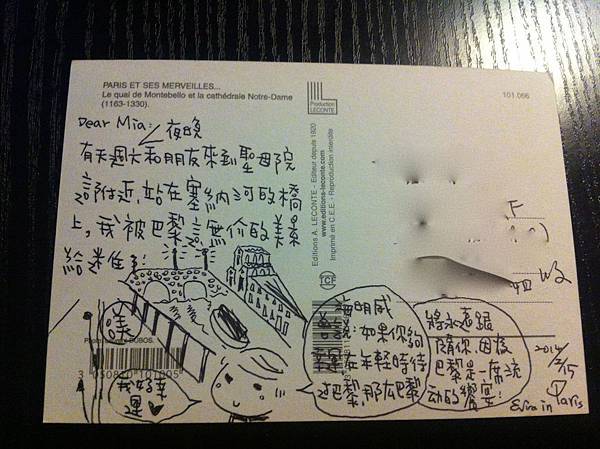 PARIS ET SES MERVEILLES...
Le quai de Montebello et la cathédrale Notre-Dame
(1163-1330).
Production
LECONTE
101.066
Dear Mia:
夜晚
有天週六和朋友來到聖母院
附近,站在塞納河的橋
上,我被巴黎這無價的美景
給迷住了!
Editions A. LECONTE - Editeur depuis 1920
www.editions-leconte.com
Imprimé en C.E.E. - Reproduction interdite
TCF
海明威
說:如果你夠
幸運在年輕時待
過巴黎,那么巴黎
將永遠跟
隨你,因為
巴黎是一席流
动的饗宴!
我好幸
運
3 050810 101005
2014
2/15
in Paris